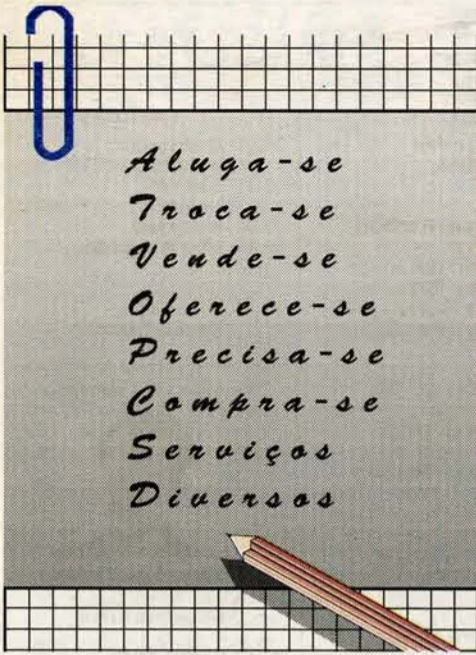 Aluga-se
Troca-se
Vende-se
Oferece-se
Precisa-se
Compra-se
Serviços
Diversos